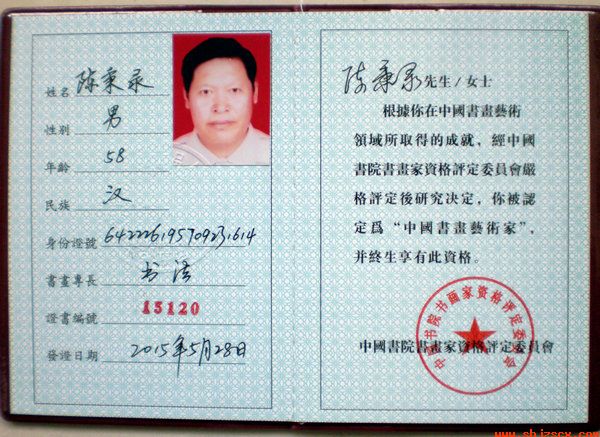 姓名 陈秉录
性别 男
年齡 58
民族 汉
身份證號 642226195709231614
書畫專長 书法
證書編號 15120
發證日期 2015年5月28日
陈秉录先生/女士
根據你在中國書畫藝術
領域所取得的成就，經中國
書院書畫家資格評定委員會嚴
格評定後研究决定，你被認
定爲“中國書畫藝術家”，
并終生享有此資格。
中国书院书画家资格评定委员会
中國書院書畫家資格評定委員會
www.shjzscx.com